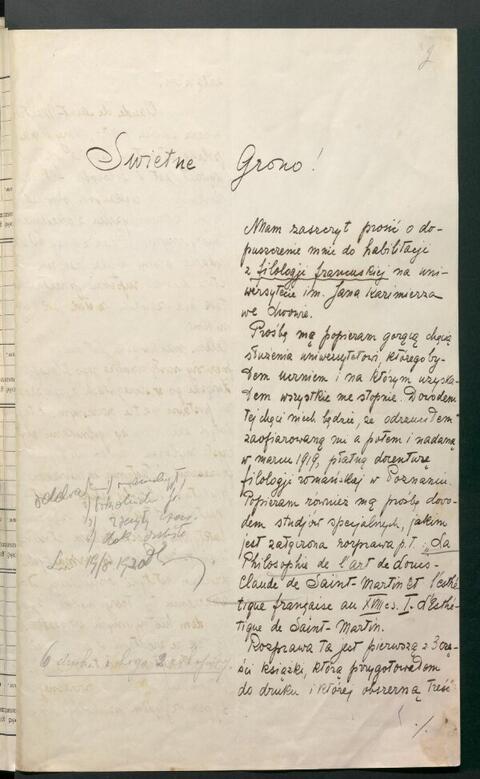 2
Świetne Grono!
Mam zaszczyt prosić o do-
puszczenie mnie do habilitacji
z filologji francuskiej na uni-
wersytecie im. Jana Kazimierza
we Lwowie.
Prośbę mą popieram gorącą chęcią
służenia uniwersytetowi, którego by-
łem uczniem i na którym uzyska-
łem wszystkie me stopnie. Dowodem
tej chęci niech będzie, że odrzuciłem
zaofiarowaną mi a potem i nadaną
w marcu 1919, płatną docenturę
filologji romańskiej w Poznaniu.
Popieram również mą prośbę dowo-
dem studjów specjalnych, jakim
jest załączona rozprawa p.t. „La
Philosophie de l'art de Louis-
Claude de Saint-Martin et l'esthé-
tique française au XVIII e s. I. d'Esthé-
tique de Saint-Martin.
Rozprawa ta jest pierwszą z 3 czę-
ści książki, którą przygotowałem
do druku i której obszerną treść
./.
19/8 1920
6